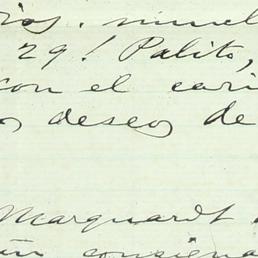 29! Palito,
con el cari
deseos de
Marquardt
consigna